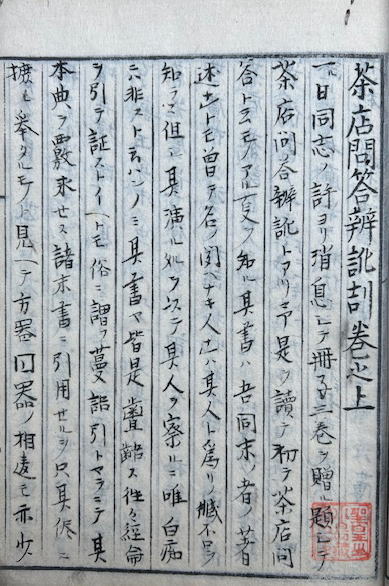 茶店問答辨訛刮巻之上
一日同志ノ許ヨリ消息シテ冊子三巻ヲ贈ル題シテ
茶店問答辨訛トアリ予是ヲ讀テ初テ茶店問
答ト云モノアル夏ヲ知ル其書ハ吾同末ノ者ノ著
述ナレトモ曽テ名ヲ聞ヘナキ人ナレハ其人ト為リ臧不臧ヲ
知ラス但シ其演ル処ヲ以テ其人ヲ察ルニ唯白痴
ニハ非スト云ハンノミ其書ヤ皆是齒齢ス徃々經論
ヲ引テ証ストイヘトモ俗ニ謂フ蔓語引トヤランニテ其
本典ヲ覈求セス諸末書ニ引用セルヲ只其侭ニ
擴シ挙タルモノト見ヘテ方器円器ノ相違モ亦少